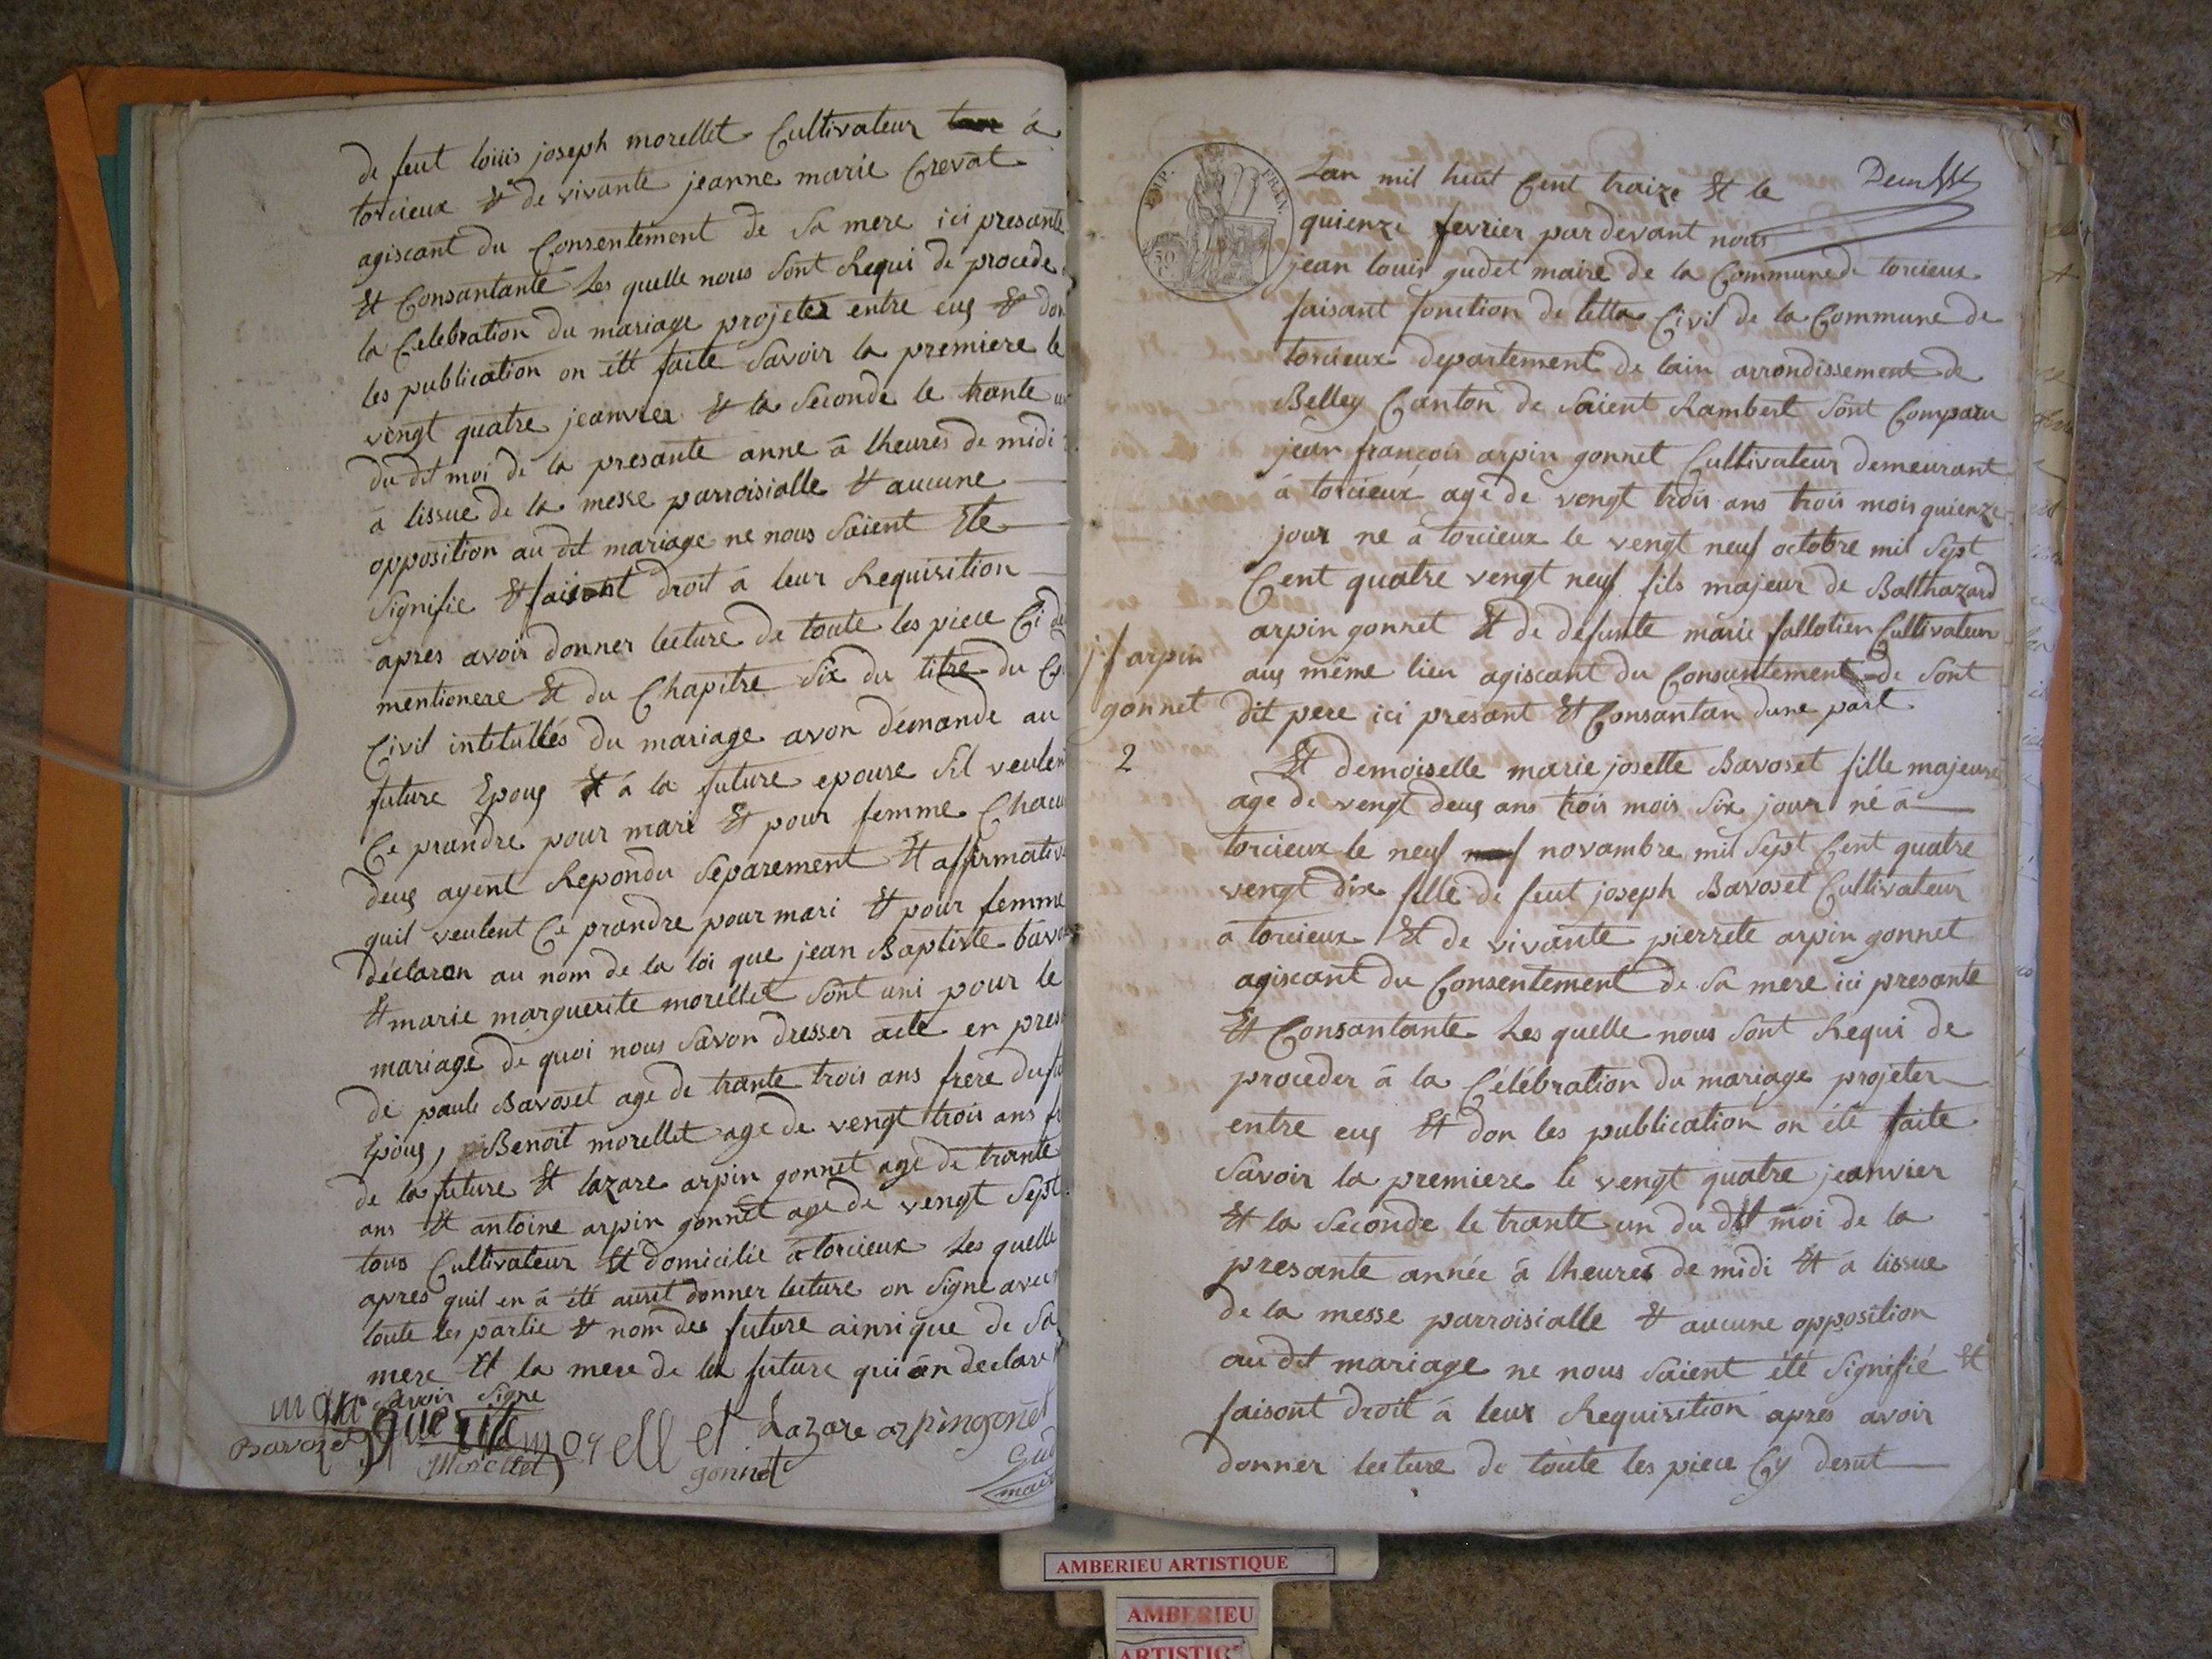 de feut louis joseph morellet Cultivateur á
torcieux Et de vivante jeanne marie Crevat
agiscant du Consentement de Sa mere ici presante
Et Consantante Les quelle nous Sont Requi de procede
la Celebration du mariage projeter entre eus Et don
les publication on été faite Savoir la premiere le
vengt quatre jeanvier Et la Seconde le trante un
du dit moi de la presante anne á lheures de midi
á lissue de la messe parroisialle Et aucune
opposition au dit mariage ne nous Saient Ete
Signifie Et faisont droit á leur Requisition
apres avoir donner lecture de toute les piece Ci de
mentionere Et du Chapitre Six du titre du Co
Civil intitullés du mariage avon demande au
future Epous Et á la future epouse Sil veulent
Ce prandre pour mari Et pour femme Chacu
deus ayent Repondu Separement Et affirmative
quil veulent Ce prandre pour mari Et pour femme
déclaron au nom de la loi que jean Baptiste bavo
Et marie marguerite morellet Sont uni pour le
mariage de quoi nous Savon dresser acte en pres
de paule Bavoset age de trante trois ans frere du fu
Epous, Benoit morellet age de vengt trois ans fr
de la future Et lazare arpin gonnet age de trante
ans Et antoine arpin gonnet age de vengt Sept
tous Cultivateur Et domicilie á torcieux Les quelle
apres quil en á été ausit donner lecture on Signe avec
toute les partie Et nom des future ainsique de Sa
mere Et la mere de la future qui on declare
Savoir Signe
marguerite morellet Lazare arpin gonet
Bavozet Morellet gonnet
Gud
mair
EMP. FRAN.
50
C
Lan mil huit Cent traize Et le
Deux
quienze fevrier pardevant nous
jean louis gudet maire de la Commune de torcieux
faisant fonction de letta Civil de la Commune de
torcieux departement de lain arrondissement de
Belley Canton de Saient Rambert Sont Comparu
jean françois arpin gonnet Cultivateur demeurant
á torcieux age de vengt trois ans trois mois quienze
jour ne á torcieux le vengt neuf octobre mil Sept
Cent quatre vengt neuf fils majeur de Balthazard
arpin gonnet Et de defunte marie fallotier Cultivateur
j f arpin
gonnet
2
aus même lieu agiscant du Consantement de Sont
dit pere ici présant Et Consantan dune part
Et demoiselle marie josette Bavoset fille majeure
age de vengt deus ans trois mois Six jour né á
torcieux le neuf novambre mil Sept Cent quatre
vengt dix fille de feut joseph Bavoset Cultivateur
á torcieux Et de vivante pierrete arpin gonnet
agiscant du Consentement de Sa mere ici presante
Et Consantante Les quelle nous Sont Requi de
proceder á la Célébration du mariage projeter
entre eus Et don les publication on été faite
Savoir la premiere le vengt quatre jeanvier
Et la Seconde le trante un du dit moi de la
presante année á lheures de midi Et á lissue
de la messe parroisialle Et aucune opposition
au dit mariage ne nous Saient été Signifié Et
faisont droit á leur Requisition apres avoir
donner lecture de toute les piece Cy desut
AMBERIEU ARTISTIQUE
AMBERIEU
ARTISTIC